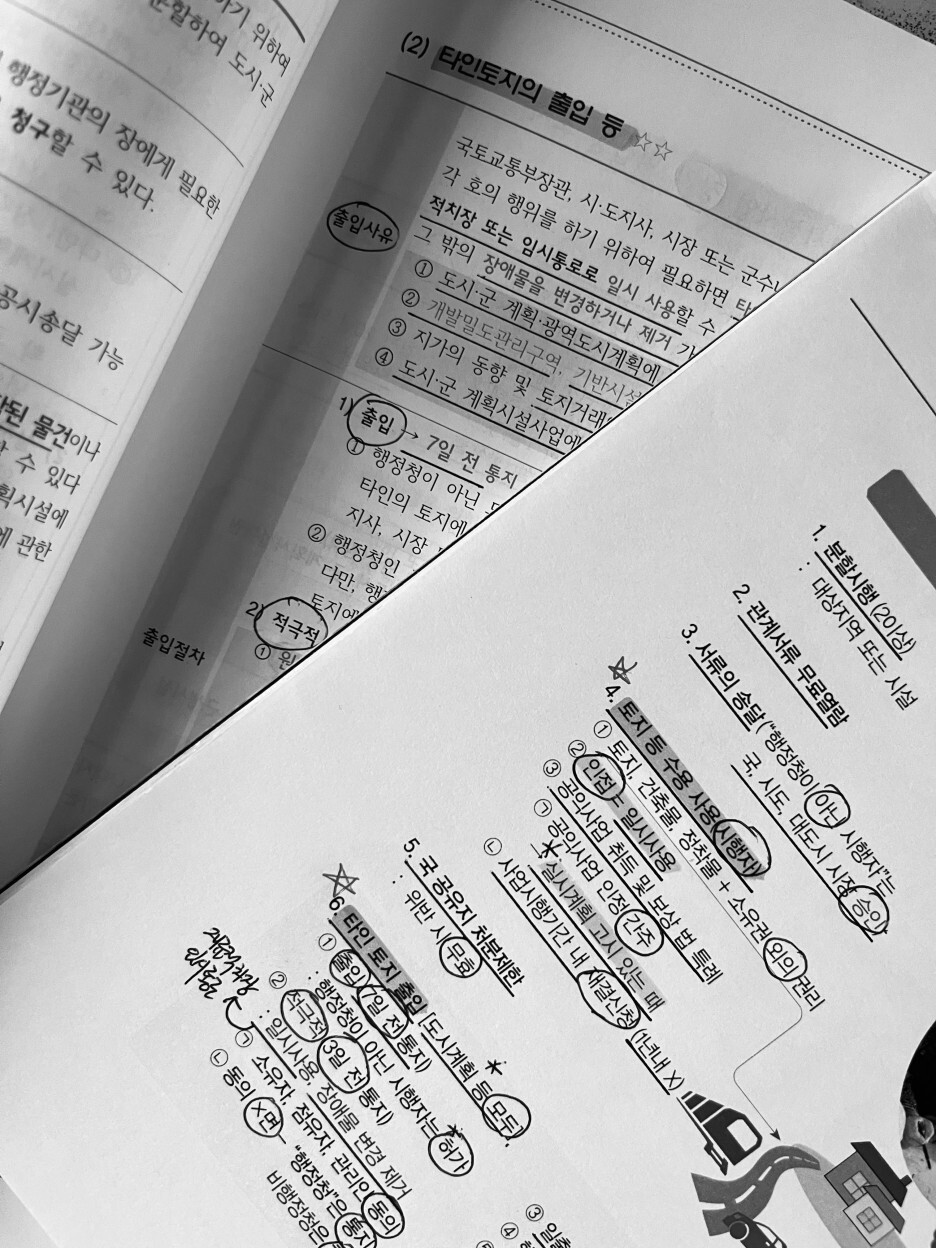 하기 위하여
분할하여 도시·군
행정기관의 장에게 필요한
청구할 수 있다.
공시송달 가능
된 물건이나
수 있다
획시설에
에 관한
(2) 타인토지의 출입 등 ☆☆
출입사유
국토교통부장관, 시·도지사, 시장 또는 군수
각 호의 행위를 하기 위하여 필요하면
적치장 또는 임시통로로 일시 사용할 수
그 밖의 장애물을 변경하거나 제거
① 도시·군 계획·광역도시계획에
② 개발밀도관리구역, 기반시설
③ 지가의 동향 및 토지거래
④ 도시·군 계획시설사업에
출입절차
1) 출입 → 7일 전 통지
① 행정청이 아닌
타인의 토지에
지사, 시장
② 행정청인
다만, 행
토지에
2) 적극적
① 원
1. 분할시행 (2이상)
: 대상지역 또는 시설
2. 관계서류 무료열람
3. 서류의 송달 ("행정청이 아닌 시행자"는
국, 시도, 대도시 시장 승인)
4. 토지 등 수용 사용(시행자)
① 토지, 건축물, 정착물 + 소유권 외의 권리
② 인접 = 일시사용
③ 공익사업 취득 및 보상 법 특례
㉠ 공익사업 인정 간주
* 실시계획 고시 있는 때
㉡ 사업시행기간 내 재결신청 (1년내 X)
5. 국 공유지 처분제한
: 위반 시 무효
6. 타인 토지 출입 [도시계획 등 모두]
① 출입 7일 전 통지)
: 행정청이 아닌 시행자는 허가
② 적극적 3일 전 통지)
: 일시사용, 장애물 변경 제거
㉠ 소유자, 점유자, 관리인 동의
㉡ 동의 X면 – "행정청"은 통지
비행정청은
③ 일출
④